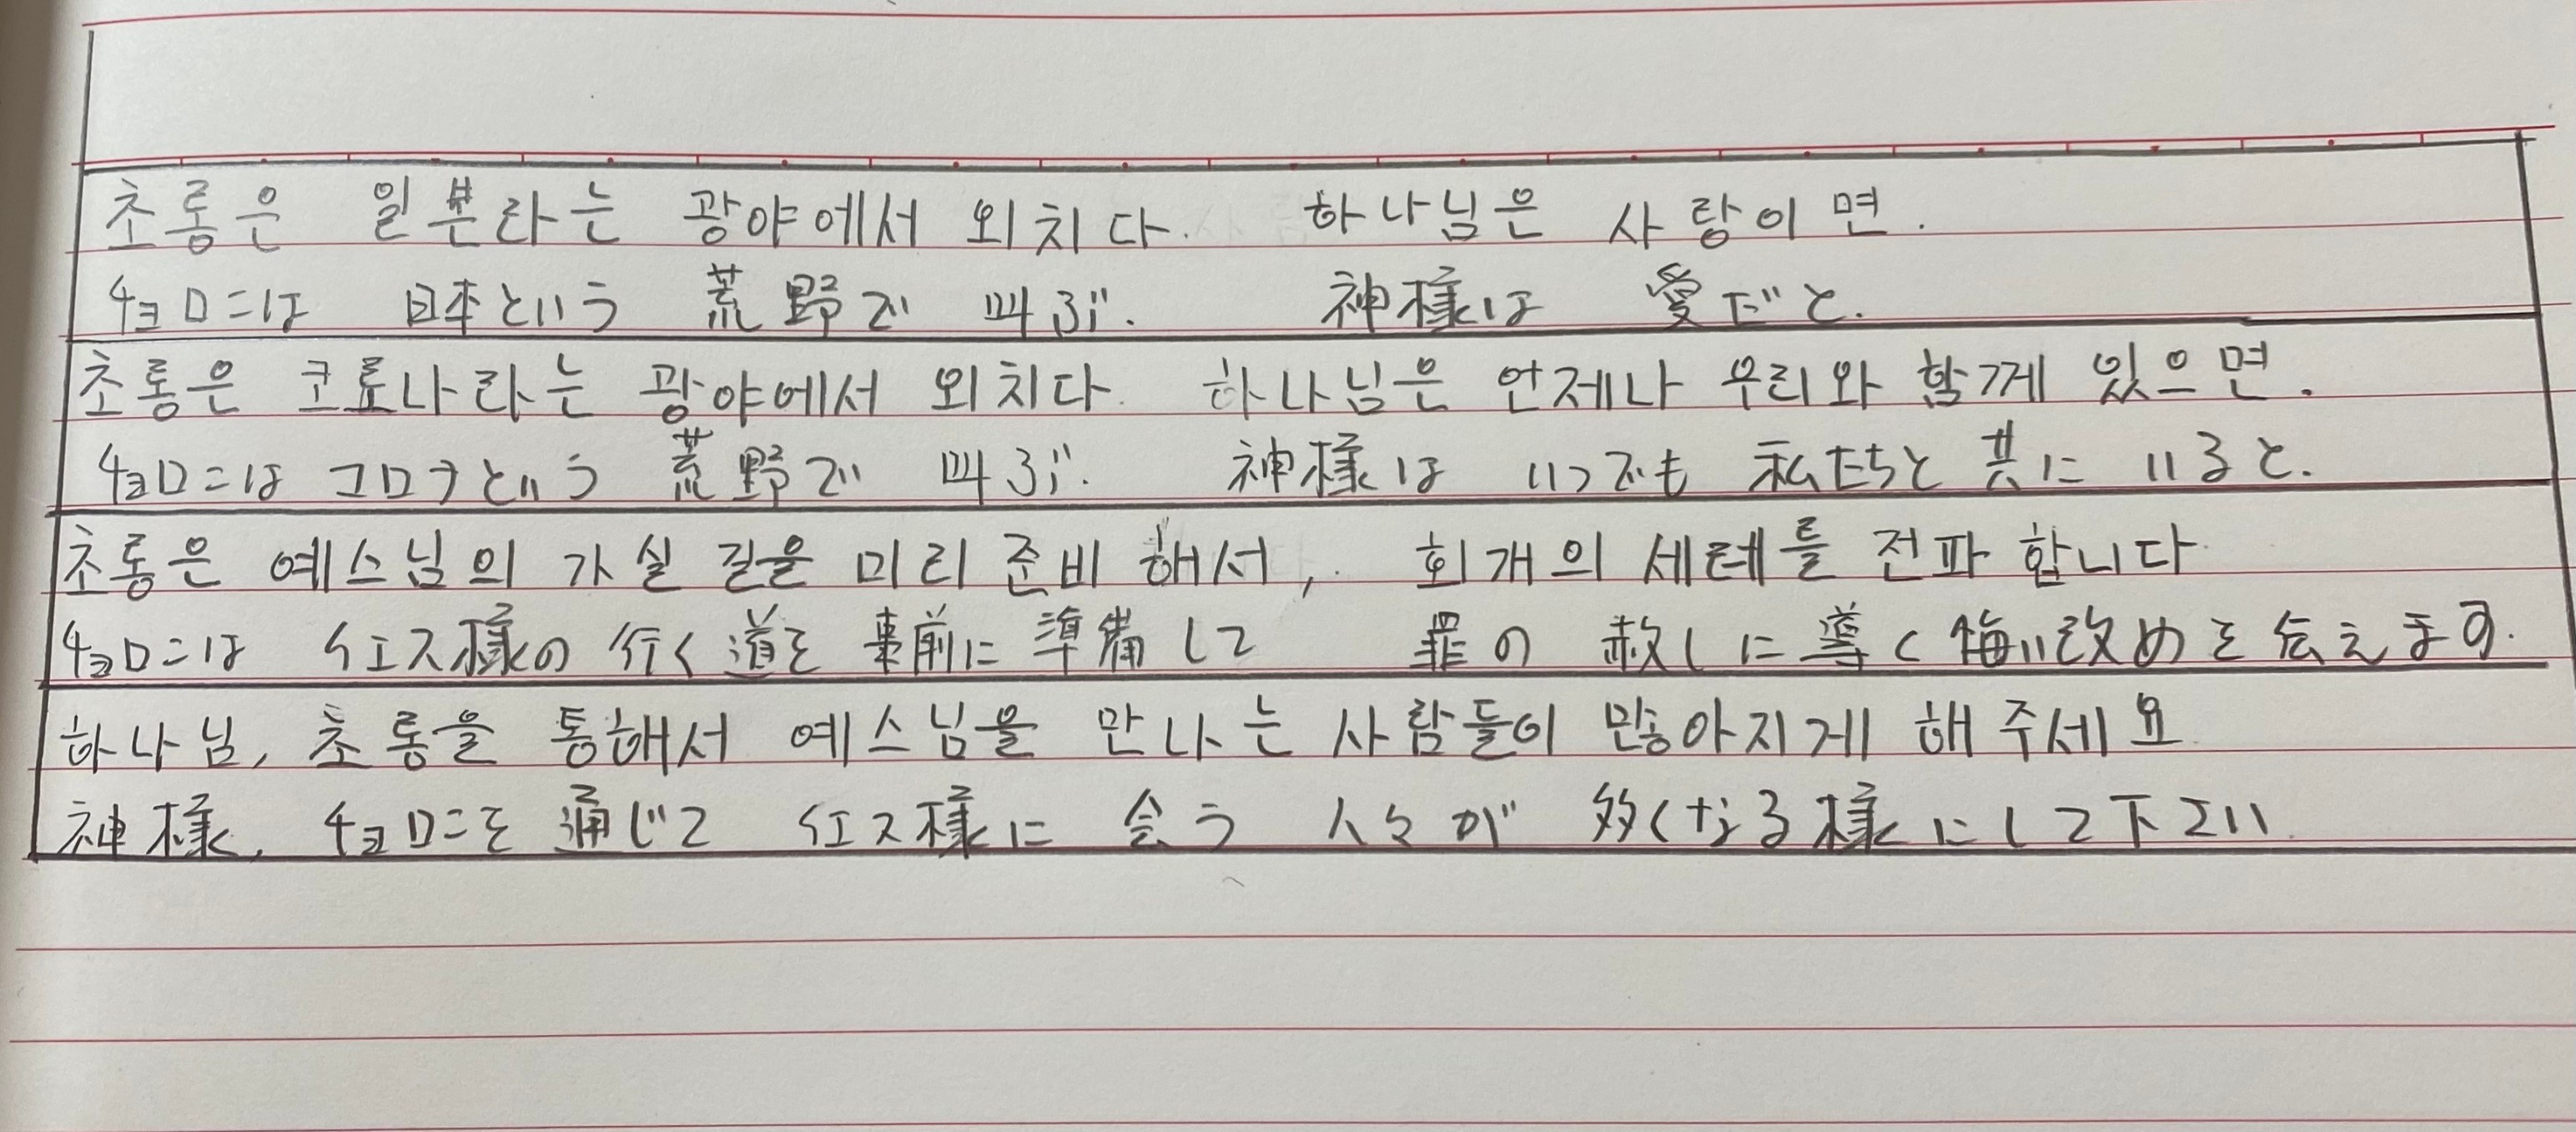 초롱은 일본라는 광야에서 외치다. 하나님은 사랑이면.
チョロンは 日本という 荒野で 叫ぶ. 神様は 愛だと.
초롱은 코로나라는 광야에서 외치다. 하나님은 언제나 우리와 함께 있으면.
チョロンは コロナという 荒野で 叫ぶ. 神様は いつでも 私たちと 共に いると.
초롱은 예스님의 가실 길을 미리 준비해서, 회개의 세례를 전파합니다
チョロンは イエス様の 行く道を 事前に 準備して 罪の 赦しに 導く 悔い改めを 伝えます.
하나님, 초롱을 통해서 예스님을 만나는 사람들이 많아지게 해 주세요
神様, チョロンを 通じて イエス様に 会う 人々が 多くなる様にして下さい